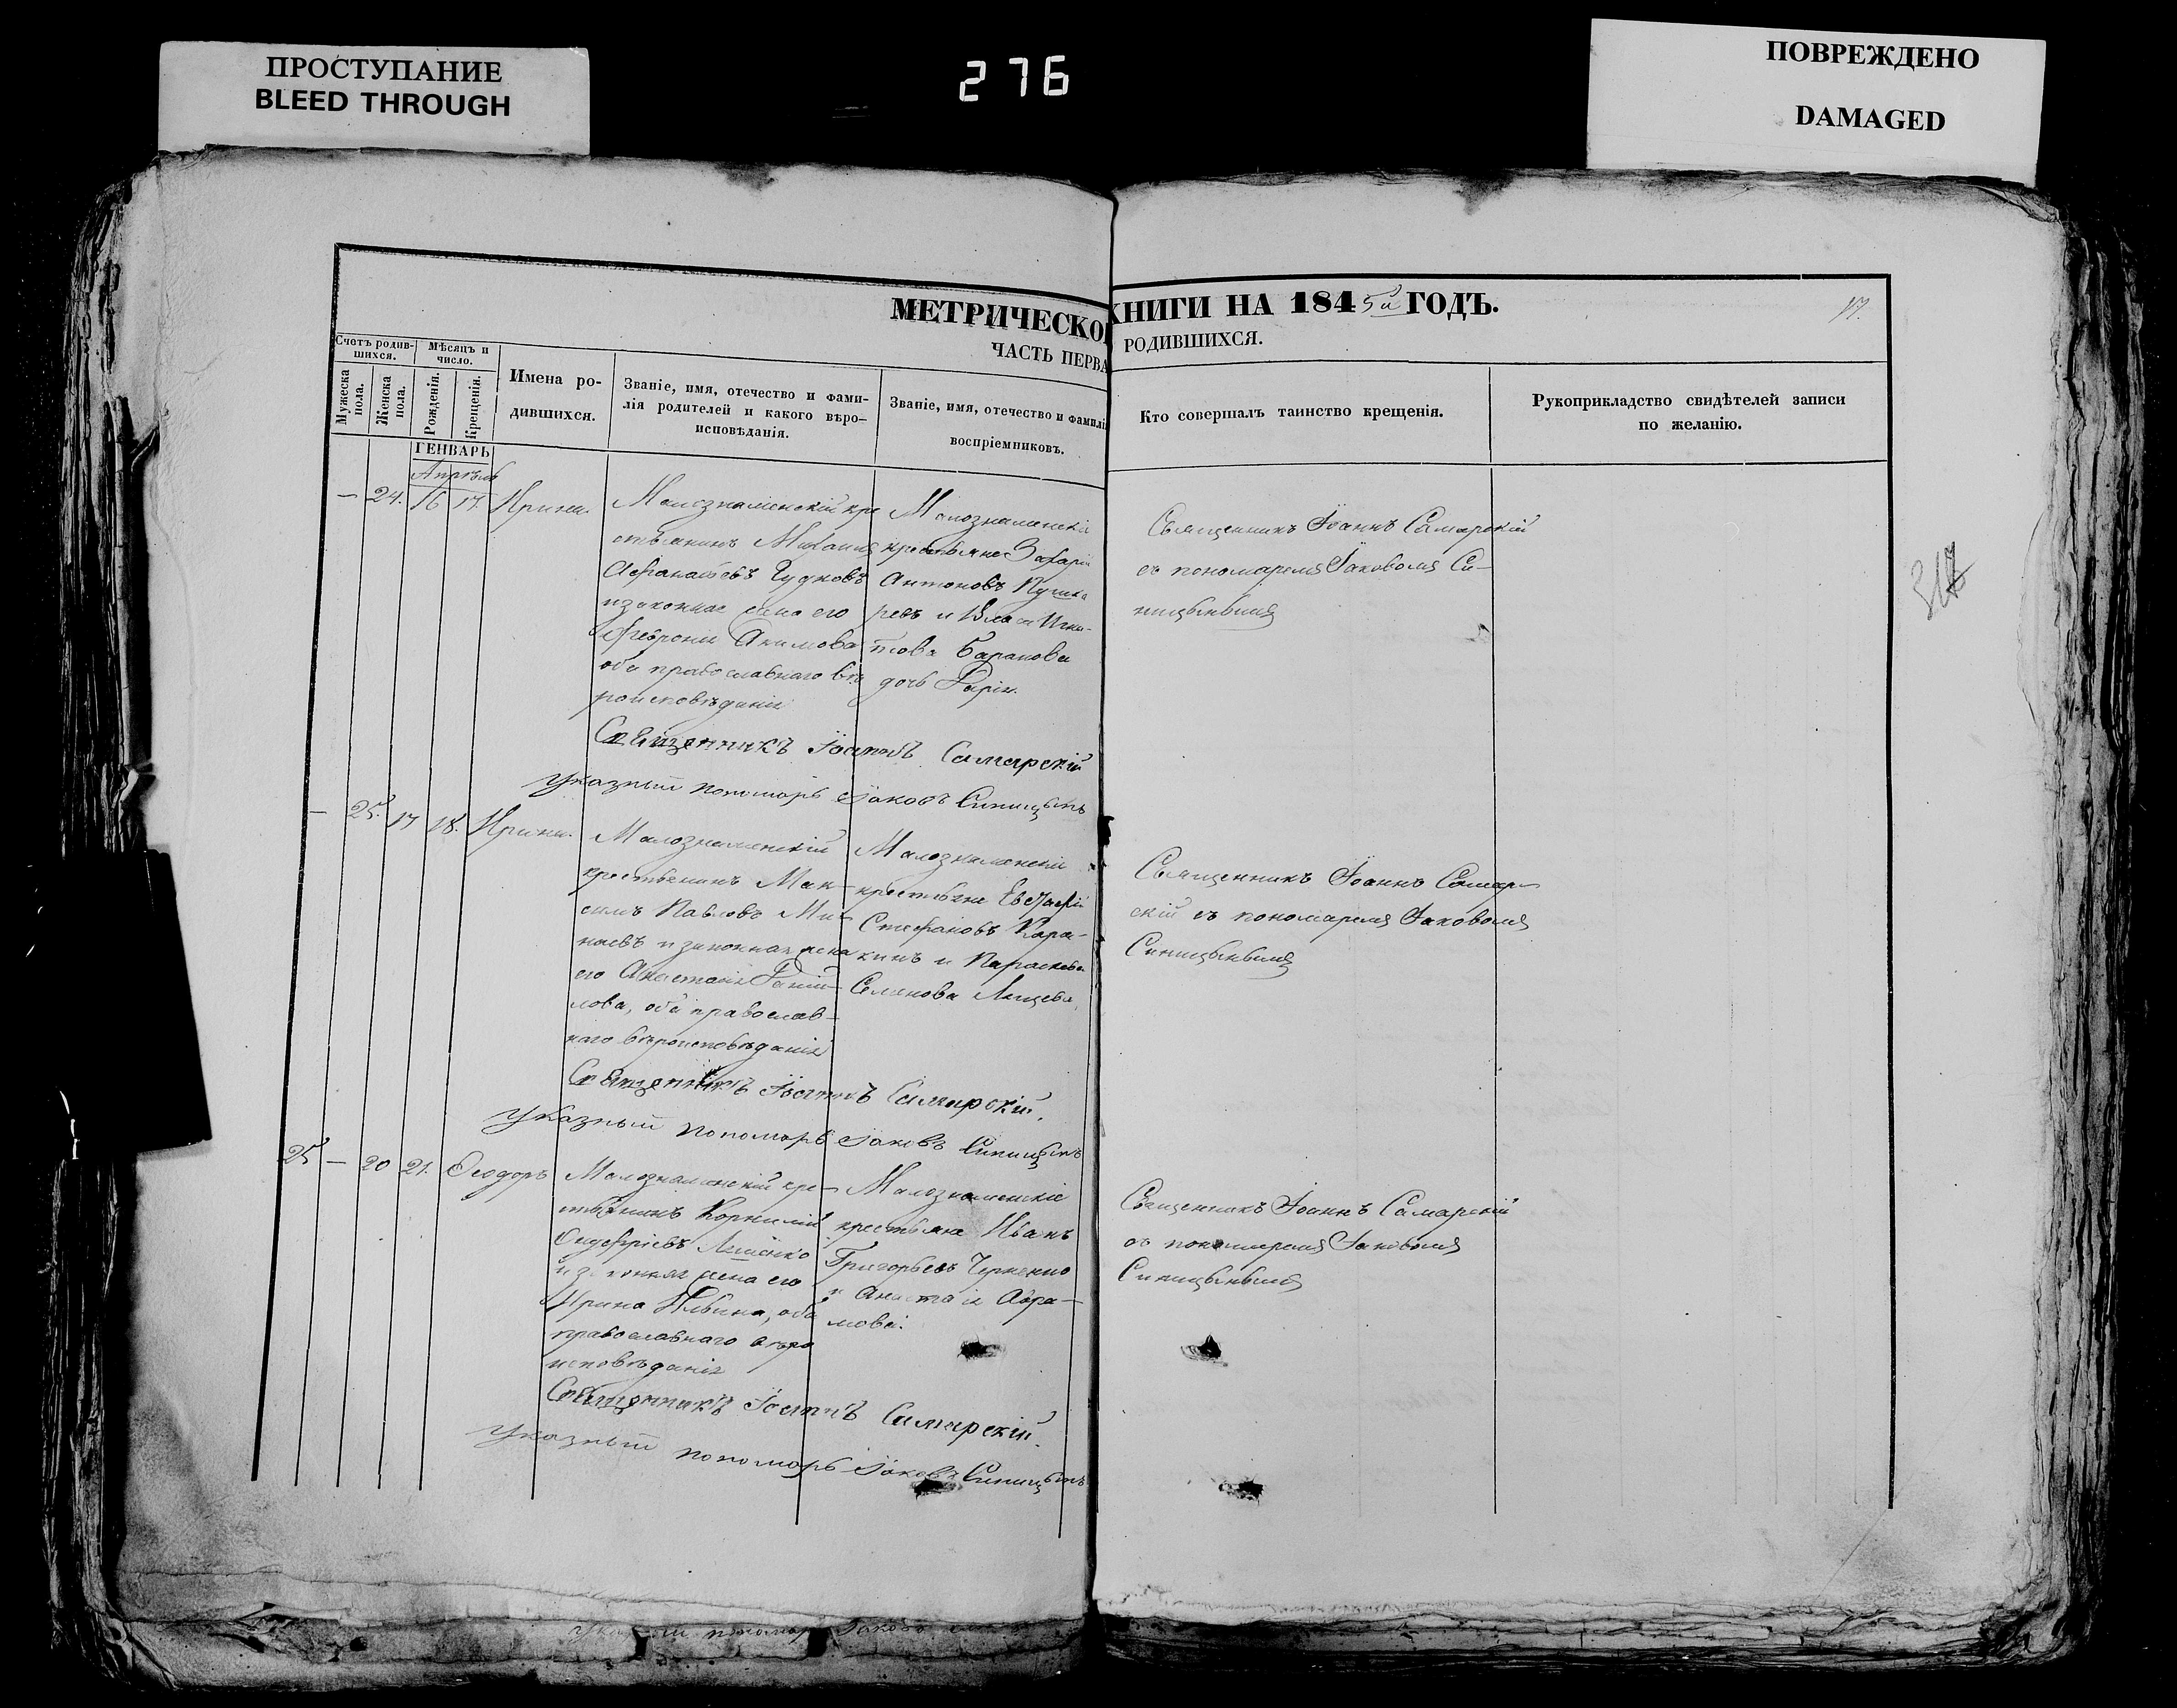 ПРОСТУПАНИЕ
BLEED THROUGH
276
ПОВРЕЖДЕНО
DAMAGED
МЕТРИЧЕСКО КНИГИ НА 1845й ГОДЪ.
17.
ЧАСТЬ ПЕРВА РОДИВШИХСЯ.
Счетъ родив-
шихся.
Мѣсяцъ и
число.
Мужеска
пола.
Женска
пола.
Рожденія.
Крещенія.
Имена ро-
дившихся.
Званіе, имя, отечество и фами-
лія родителей и какого вѣро-
исповѣданія.
Званіе, имя, отечество и фамилі
воспріемниковъ.
Кто совершалъ таинство крещенія.
Рукоприкладство свидѣтелей записи
по желанію.
ГЕНВАРЬ
Апрѣль
— 24. 16 17. Ирина.
Малознаменскій кре
стьянинъ Михаилъ
Афанасьевъ Гудковъ
и законная жена его
Феврония Акимова
оба православнаго вѣ
роисповѣданія
Малознаменскіе
крестьяне Захарій
Антоновъ Пушка
ревъ и Власа Игна-
това Баранова
дочь Дарія.
Священникъ Іоаннъ Самарскій
съ пономаремъ Іаковомъ Си-
ницынымъ
Священникъ Іоаннъ Самарскій
Указный пономарь Іаковъ Синицынъ
— 25. 17 18. Ирина.
Малознаменскій
крестьянинъ Мак-
симъ Павловъ Ми-
наевъ и законная жена
его Анастасія Даній-
лова, оба православ-
наго вѣроисповѣданія
Малознаменскіе
крестьяне Евстафій
Стефановъ Кора-
кинъ и Параскева
Семенова Лицева.
Священникъ Іоаннъ Самар-
скій съ пономаремъ Іаковомъ
Синицынымъ
Священникъ Іоаннъ Самарскій.
Указный пономарь Іаковъ Синицынъ
25 — 20 21. Ѳеодоръ
Малознаменскій кре-
стьянинъ Корнилій
Онуфріевъ
и законная жена его
Ирина Ильина, оба
православнаго вѣро
исповѣданія
Малознаменскіе
крестьяне Иванъ
Григорьевъ Черненко
и Анастасія Авра-
мова.
Священникъ Іоаннъ Самарскій
съ пономаремъ Іаковомъ
Синицынымъ
Священникъ Іоаннъ Самарскій.
Указный пономарь Іаковъ Синицынъ
Указный пономарь Іаковъ